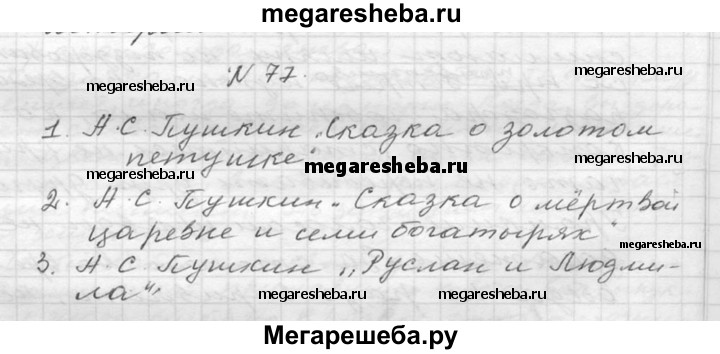 megaresheba.ru
№ 77.
megaresheba.ru
megaresheba.ru
1. А.С. Пушкин „Сказка о золотом
петушке"
megaresheba.ru
megaresheba.ru
2. А.С. Пушкин „Сказка о мёртвой
царевне и семи богатырях"
megaresheba.ru
3. А.С Пушкин „Руслан и Людми-
ла"
megaresheba.ru
megaresheba.ru
Мегарешеба.ру